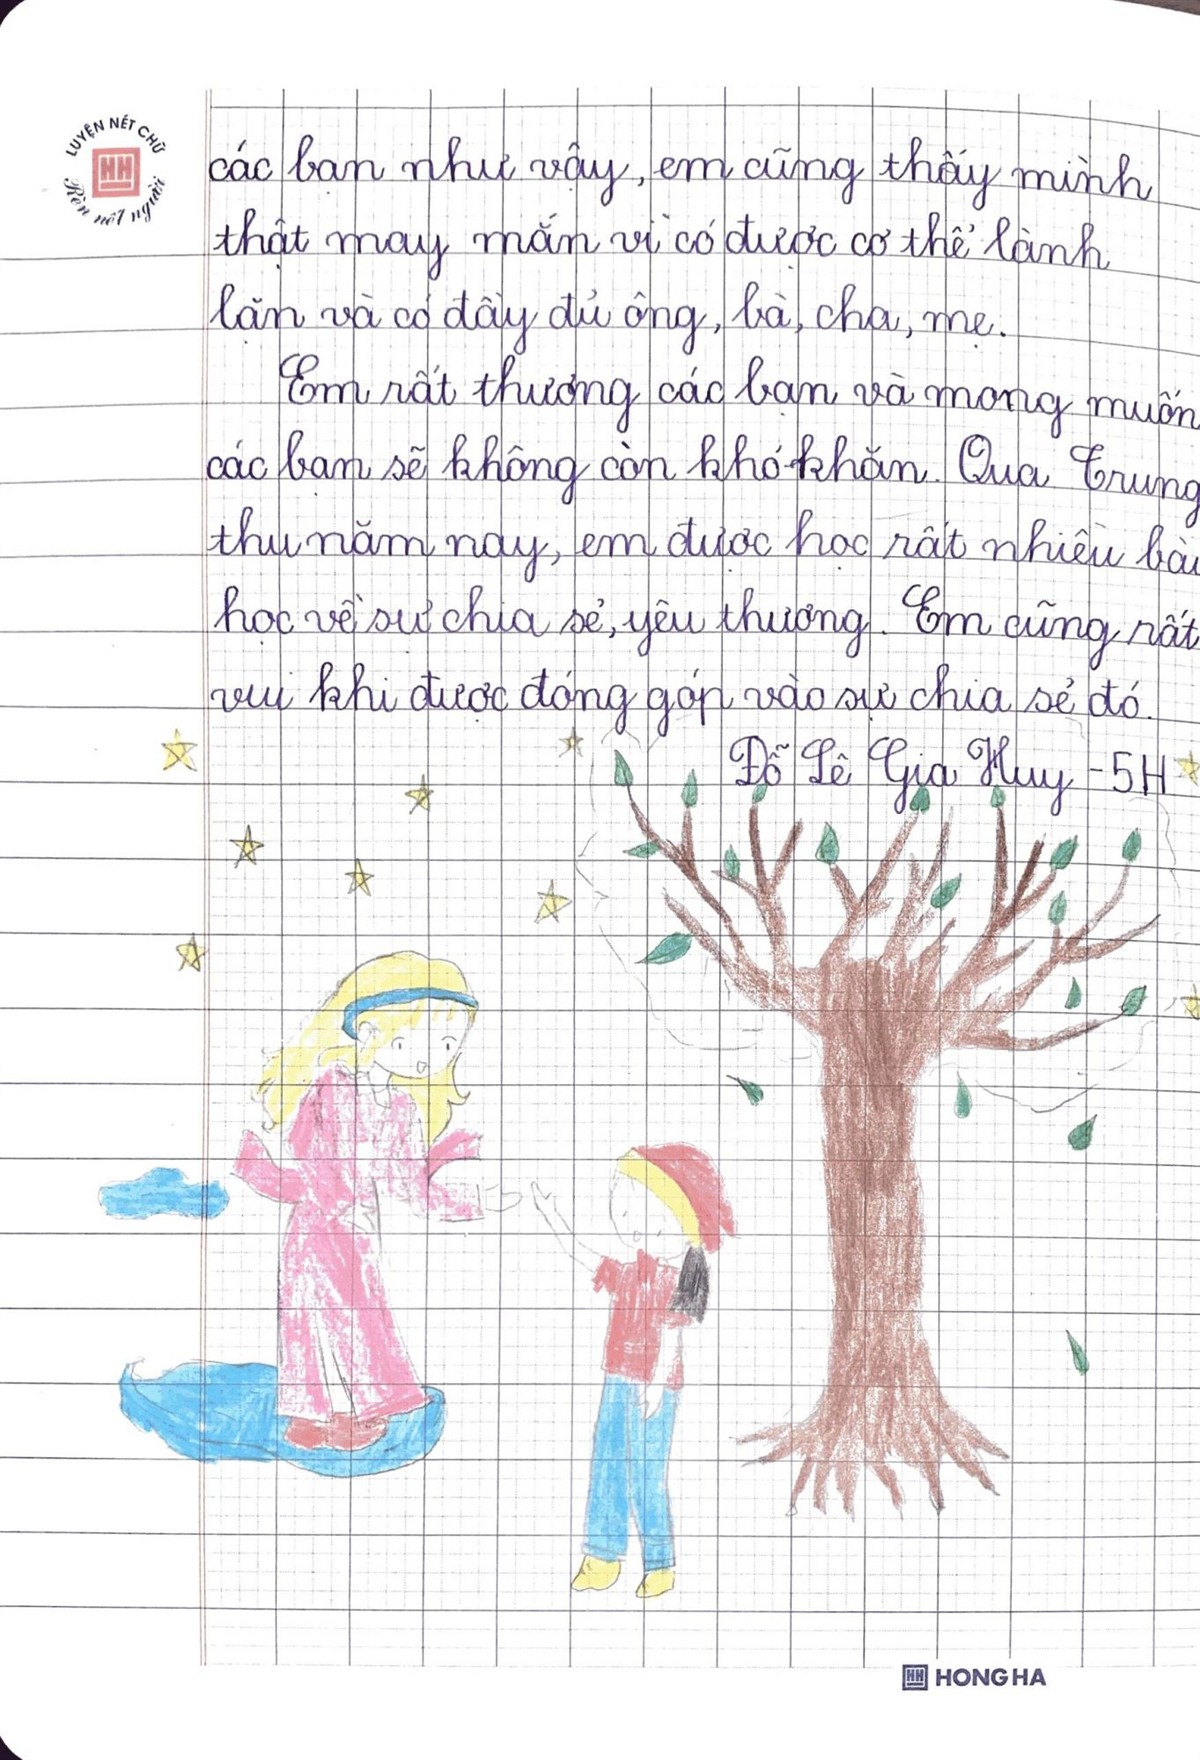 LUYỆN NÉT CHỮ
HH
Rèn nết người
các bạn như vậy, em cũng thấy mình
thật may mắn vì có được cơ thể lành
lặn và có đầy đủ ông, bà, cha, mẹ.
Em rất thương các bạn và mong muốn
các bạn sẽ không còn khó khăn. Qua Trung
thu năm nay, em được học rất nhiều bài
học về sự chia sẻ, yêu thương. Em cũng rất
vui khi được đóng góp vào sự chia sẻ đó.
Đỗ Lê Gia Huy - 5H
HH HONG HA